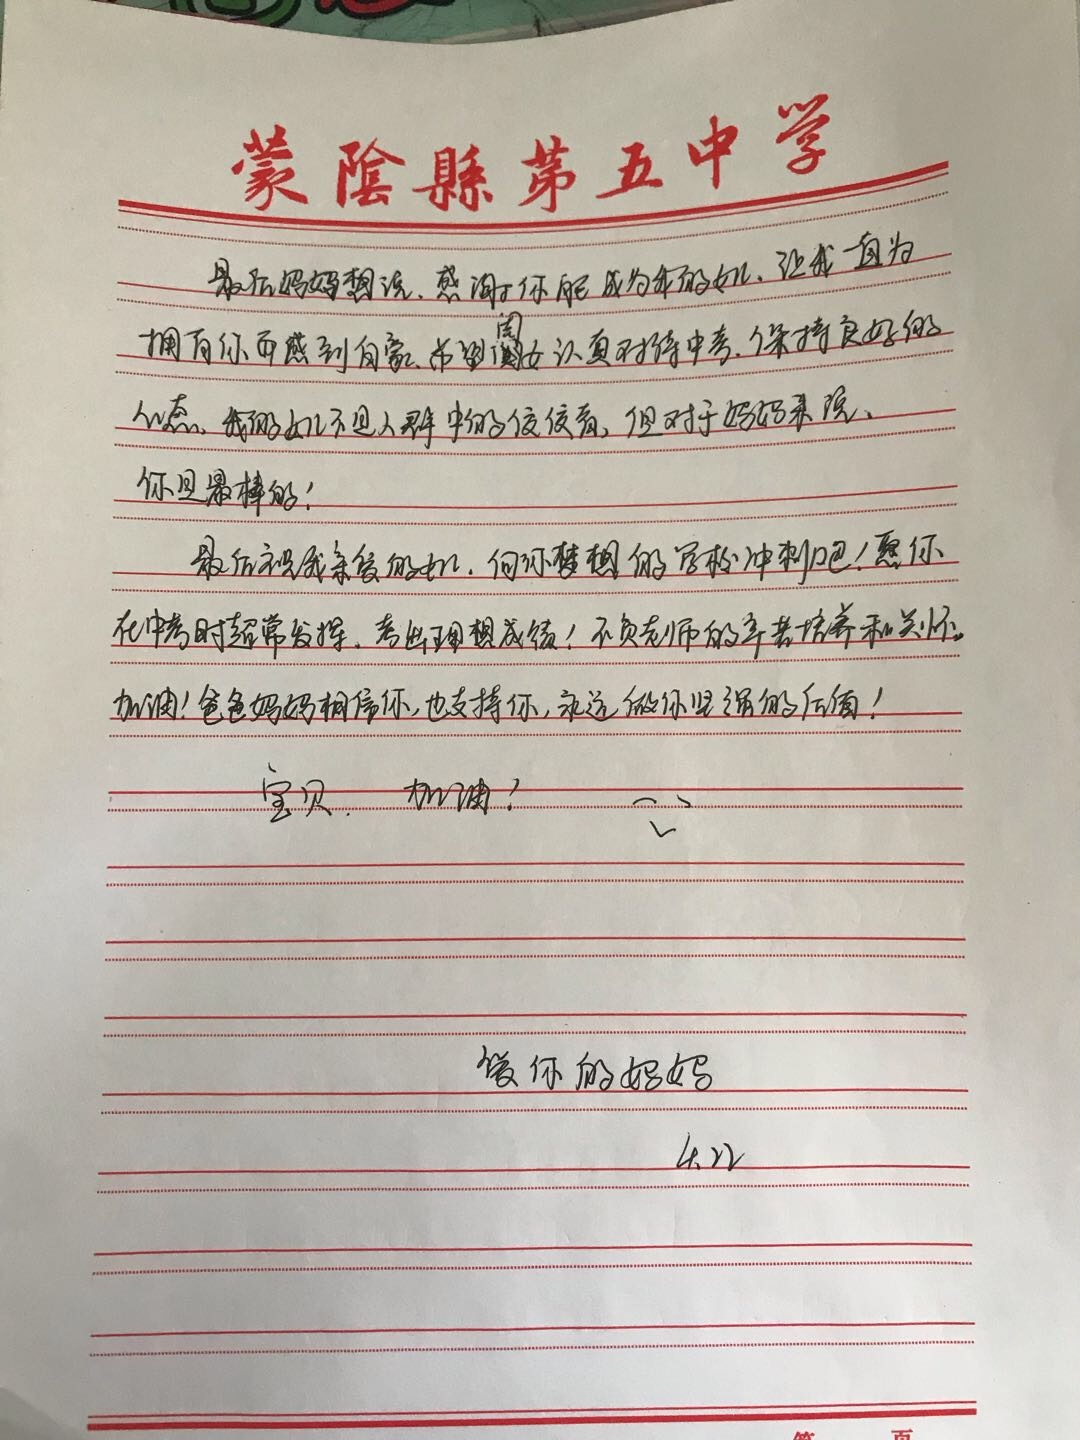 蒙陰縣第五中学
最后妈妈想说、感谢你能成为我的女儿、让我一直为
拥有你而感到自豪、希望闺女认真对待中考、保持良好的
心态、我的女儿不是人群中的佼佼者，但对于妈妈来说、
你是最棒的！
最后祝我亲爱的女儿、向你梦想的学校冲刺吧！愿你
在中考时超常发挥、考出理想成绩！不负老师的辛苦培养和关怀。
加油！爸爸妈妈相信你，也支持你，永远做你坚强的后盾！
宝贝、加油！
爱你的妈妈
4.22
第 页